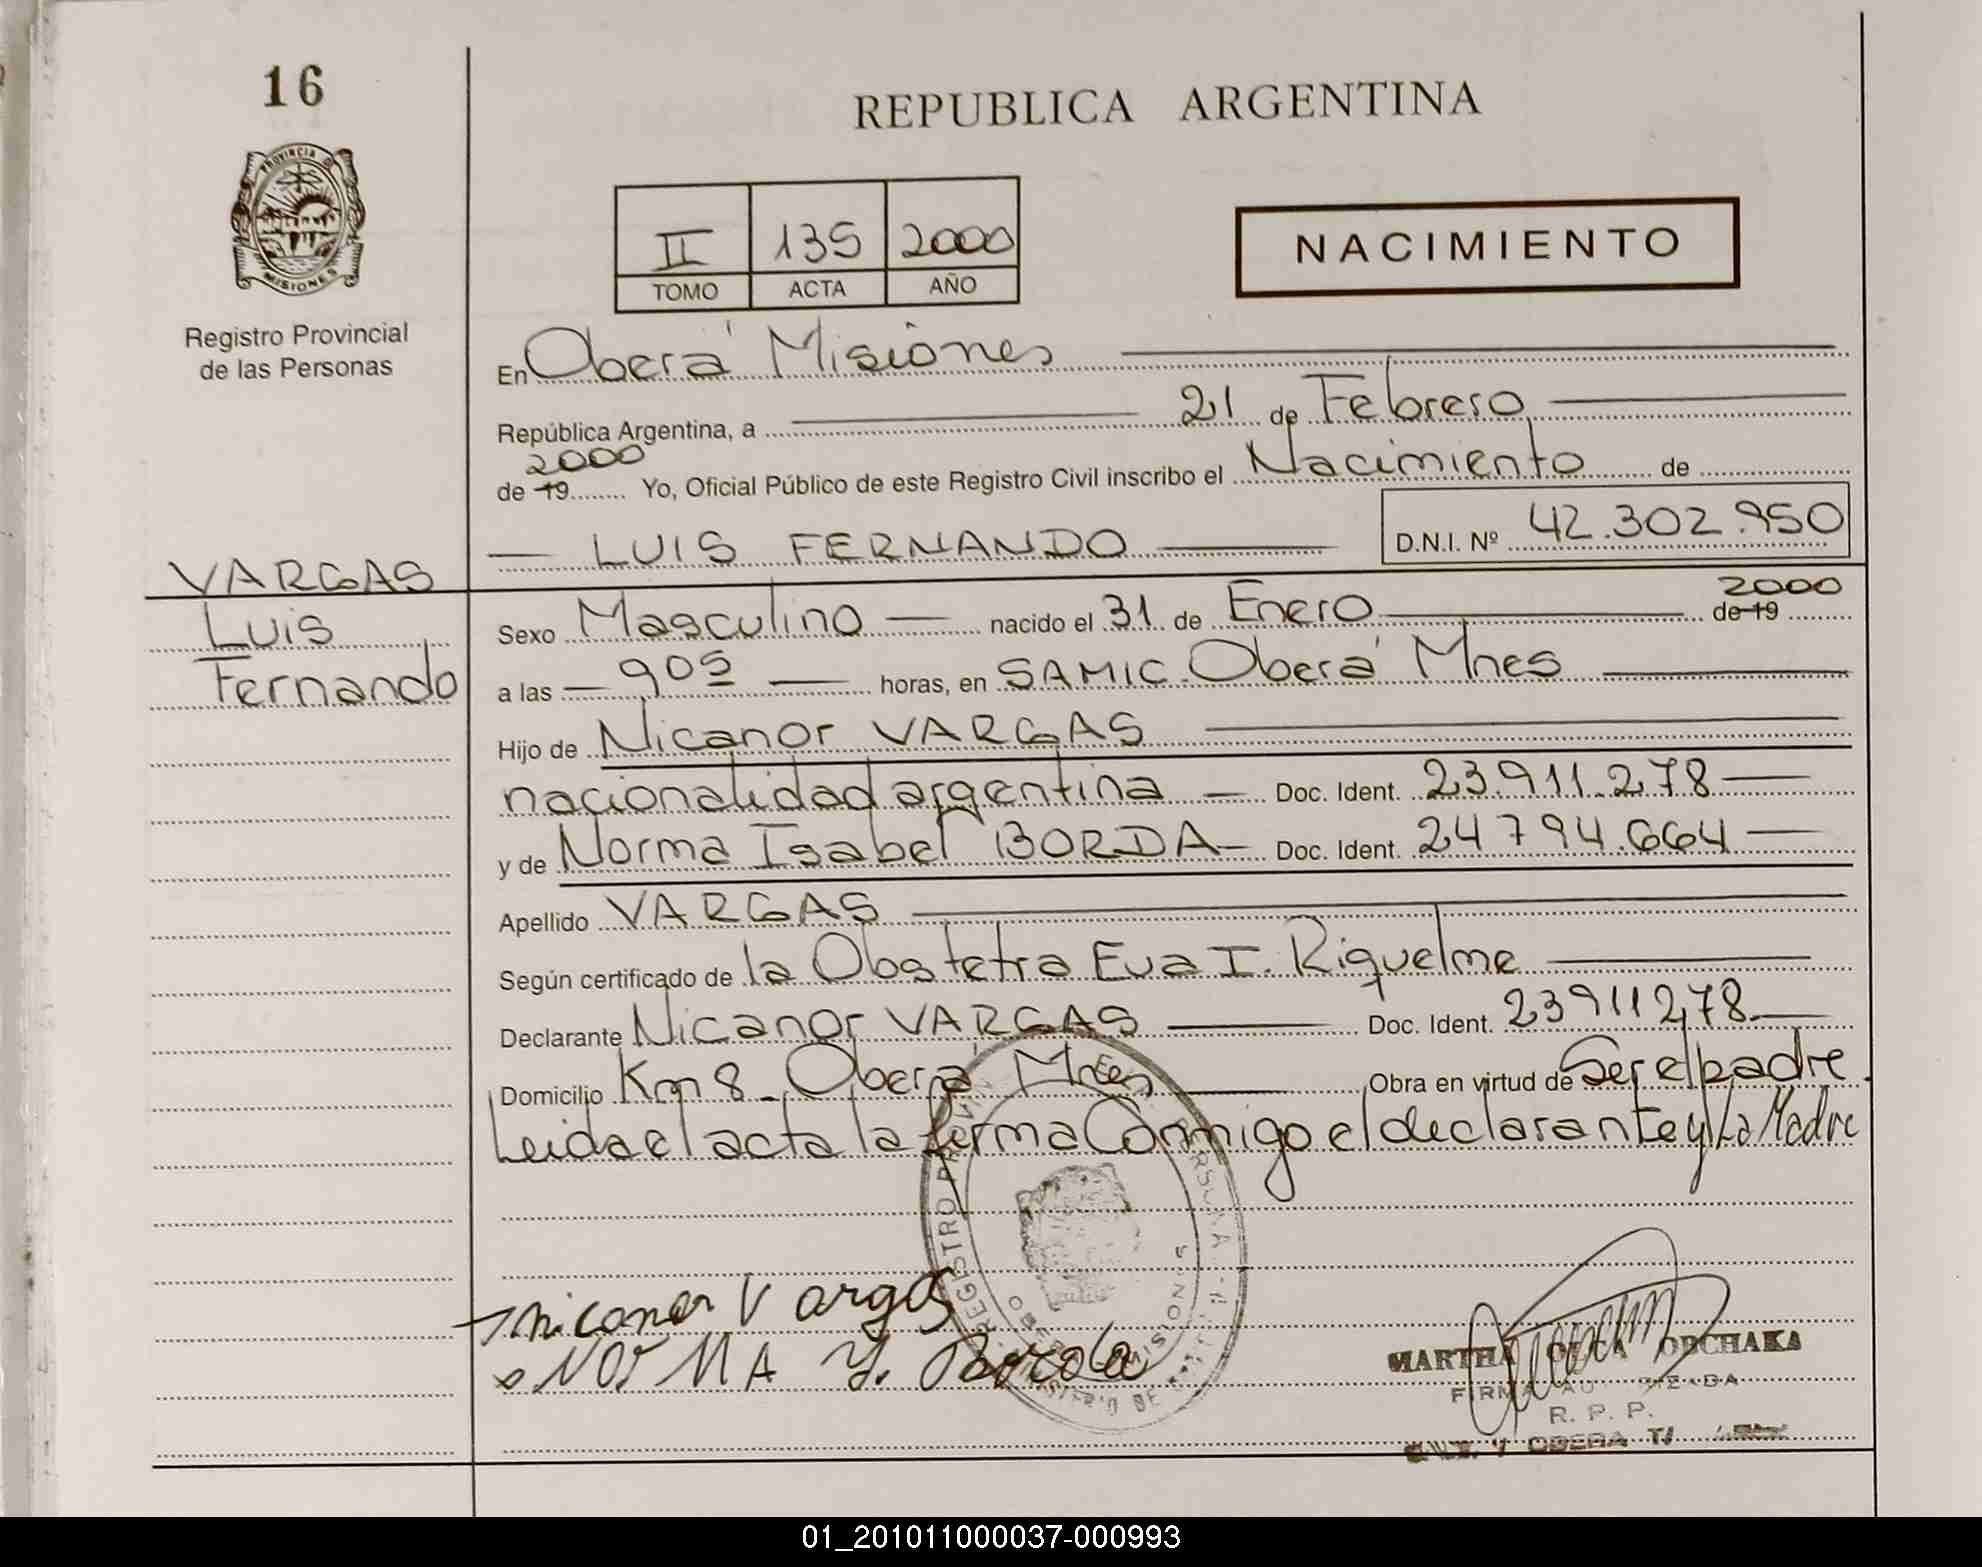 16
REPUBLICA ARGENTINA
PROVINCIA DE
MISIONES
Registro Provincial
de las Personas
II 135 2000
TOMO ACTA AÑO
NACIMIENTO
En Oberá Misiones
República Argentina, a 21 de Febrero
2000
de 19 Yo, Oficial Público de este Registro Civil inscribo el Nacimiento de
LUIS FERNANDO D.N.I. Nº 42.302.950
VARGAS
Luis
Fernando
2000
Sexo Masculino nacido el 31 de Enero de 19
a las 905 horas, en SAMIC. Oberá Mnes
Hijo de Nicanor VARGAS
nacionalidad argentina Doc. Ident. 23.911.278
y de Norma Isabel BORDA Doc. Ident. 24794.664
Apellido VARGAS
Según certificado de la Obstetra Eva I. Riquelme
Declarante Nicanor VARGAS Doc. Ident. 23911278
Domicilio Km 8 Oberá Mnes Obra en virtud de Ser el padre.
Leida el acta la ferma Conmigo el declarante y La Madre
REGISTRO
MISIONES
nicanor Vargas
NORMA Y. Borda
MARTHA
R. P. P.
OBERA
01_201011000037-000993